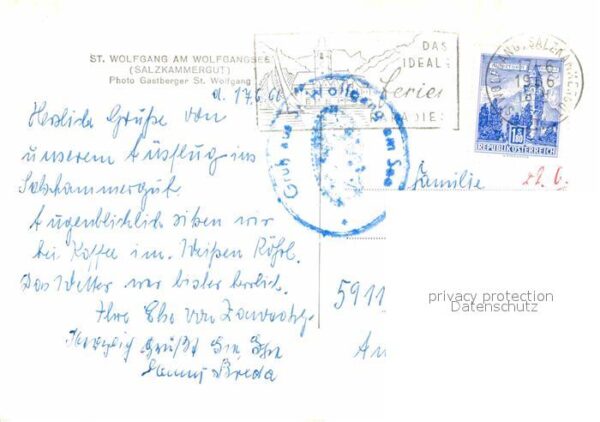 ST. WOLFGANG AM WOLFGANGSEE
(SALZKAMMERGUT)
Photo Gastberger St. Wolfgang
17.6.
Herzliche Grüße von
unserem Ausflug ins
Salzkammergut.
Augenblicklich sitzen wir
bei Kaffee im Weißen Rößl.
Das Wetter war bisher herrlich.
Ihre Ehe von
Herzlich grüßt Sie Ihre
Breda
DAS
IDEALE
Ferien
Gruß aus St. Wolfgang am See
17.6.
REPUBLIK ÖSTERREICH
1.80
Familie
22.6.
5911
privacy protection
Datenschutz